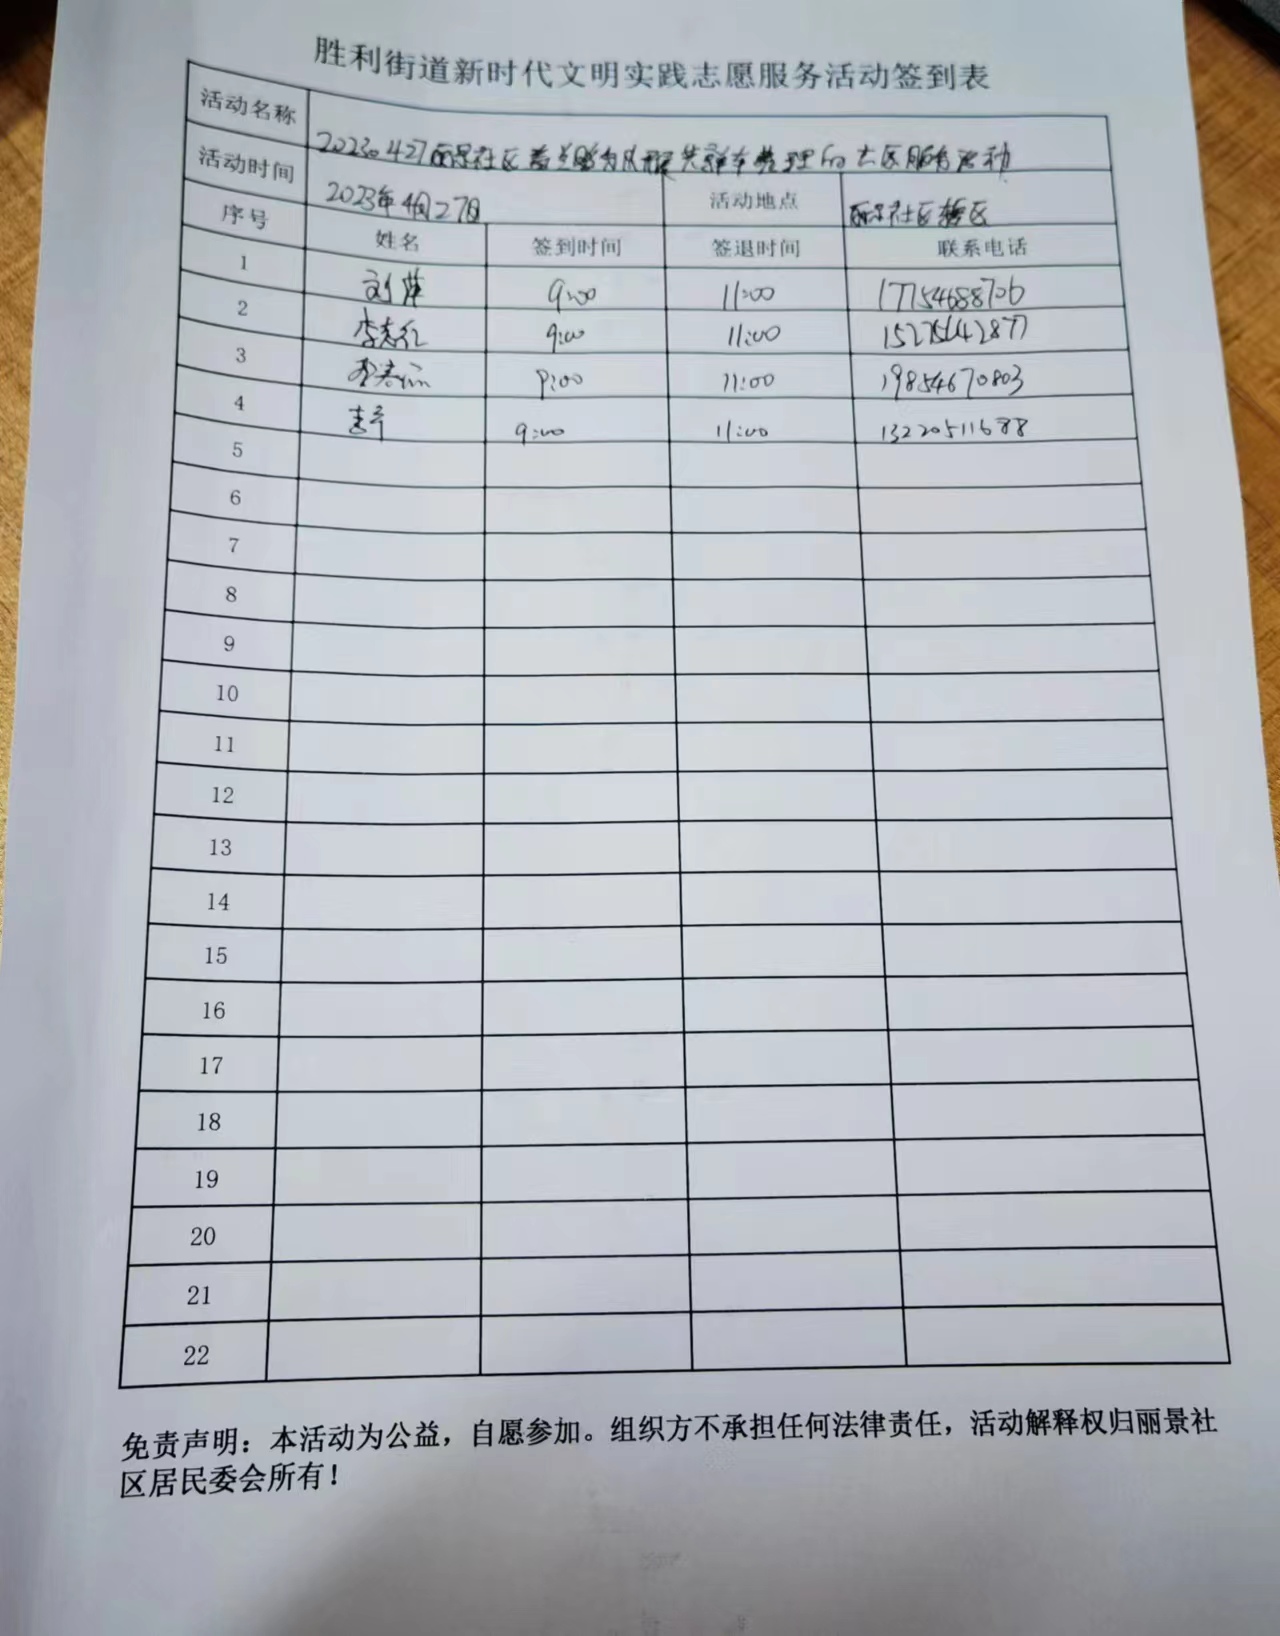 胜利街道新时代文明实践志愿服务活动签到表
活动名称 2023.4.27丽景社区 共享车整理 社区服务活动
活动时间 2023年4月27日 活动地点 丽景社区辖区
序号 姓名 签到时间 签退时间 联系电话
1 刘萍 9:00 11:00 17154688706
2 李志红 9:00 11:00
3 9:00 11:00 19854670803
4 9:00 11:00 13220511688
5
6
7
8
9
10
11
12
13
14
15
16
17
18
19
20
21
22
免责声明：本活动为公益，自愿参加。组织方不承担任何法律责任，活动解释权归丽景社
区居民委会所有！